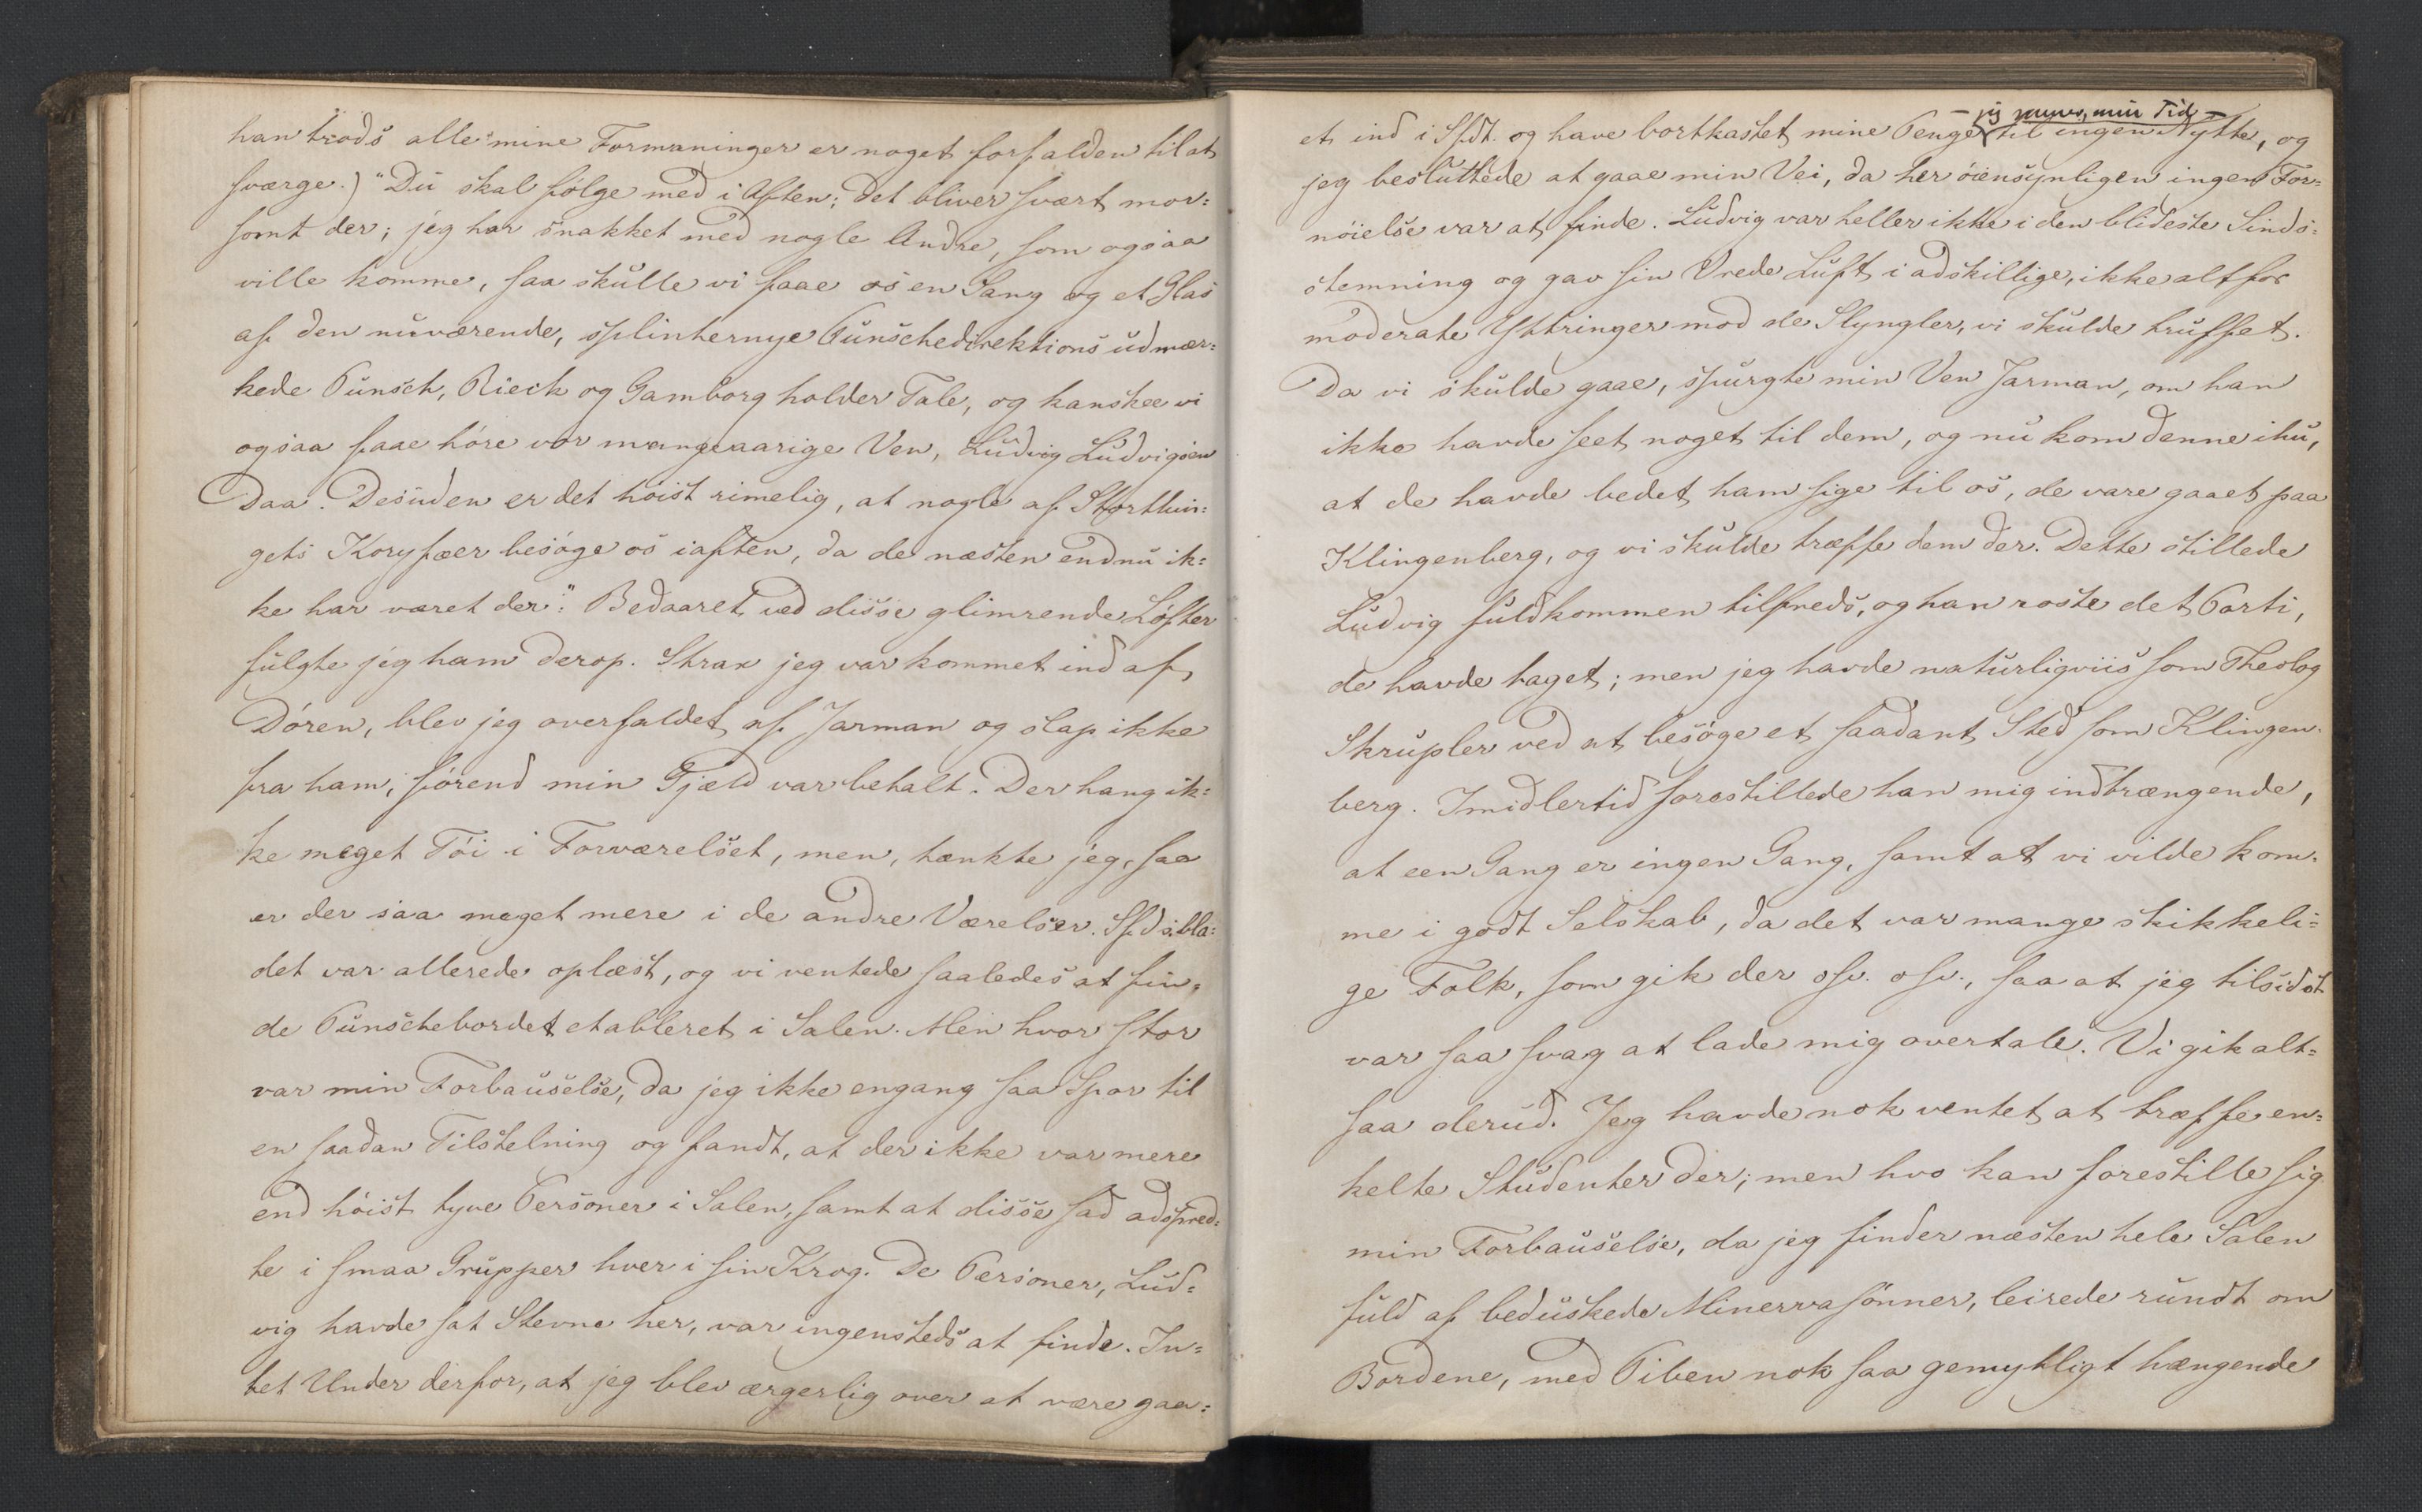 han trods alle mine Formaninger er noget forfalden til at
sværge.) "Du skal følge med i Aften; det bliver svært mor=
somt der; jeg har snakket med nogle Andre, som ogsaa
ville komme, saa skulle vi faae os en Sang og et Glas
af den nuværende, splinternye Punschedirektions udmær=
kede Punsch, Rieck og Gamborg holder Tale, og kanskee vi
ogsaa faae høre vor mangeaarige Ven, Ludvig Ludvigsen
Daa. Desuden er det høist rimelig, at nogle af Storthin=
gets Koryfæer besøge os iaften, da de næsten endnu ik=
ke har været der." Bedaaret ved disse glimrende Løfter
fulgte jeg ham derop. Strax jeg var kommet ind af
Døren, blev jeg overfaldet af Jarman og slap ikke
fra ham, førend min Gjæld var betalt. Der hang ik=
ke meget Tøi i Forværelset, men, tænkte jeg, saa
er der saa meget mere i de andre Værelser. Sfds.bla=
det var allerede oplæst, og vi ventede saaledes at fin=
de Punschebordet etableret i Salen. Men hvor stor
var min Forbauselse, da jeg ikke engang saa Spor til
en saadan Tilstelning og fandt, at der ikke var mere
end høist tyve Personer i Salen, samt at disse sad adspred=
te i smaa Grupper hver i sin Krog. De Personer, Lud=
vig havde sat Stevne her, var ingensteds at finde. In=
tet Under derfor, at jeg blev ærgerlig over at være gaa=
– jeg mener, min Tid –
et ind i Sfdt. og have bortkastet mine Penge til ingen Nytte, og
jeg besluttede at gaae min Vei, da her øiensynligen ingen For=
nøielse var at finde. Ludvig var heller ikke i den blideste Sinds=
stemning og gav sin Vrede Luft i adskillige, ikke altfor
moderate Yttringer mod de Slyngler, vi skulde truffet.
Da vi skulde gaae, spurgte min Ven Jarman, om han
ikke havde seet noget til dem, og nu kom denne ihu,
at de havde bedet ham sige til os, de vare gaaet paa
Klingenberg, og vi skulde træffe dem der. Dette stillede
Ludvig fuldkommen tilfreds, og han roste det Parti,
de havde taget; men jeg havde naturligviis som Theolog
Skrupler ved at besøge et saadant Sted som Klingen=
berg. Imidlertid forestillede han mig indtrængende,
at een Gang er ingen Gang, samt at vi vilde kom=
me i godt Selskab, da det var mange skikkeli=
ge Folk, som gik der osv. osv., saa at jeg tilsidst
var saa svag at lade mig overtale. Vi gik alt=
saa derud. Jeg havde nok ventet at træffe en=
kelte Studenter der; men hvo kan forestille sig
min Forbauselse, da jeg finder næsten hele Salen
fuld af beduskede Minervasønner, leirede rundt om
Bordene, med Piben nok saa gemytligt hængende